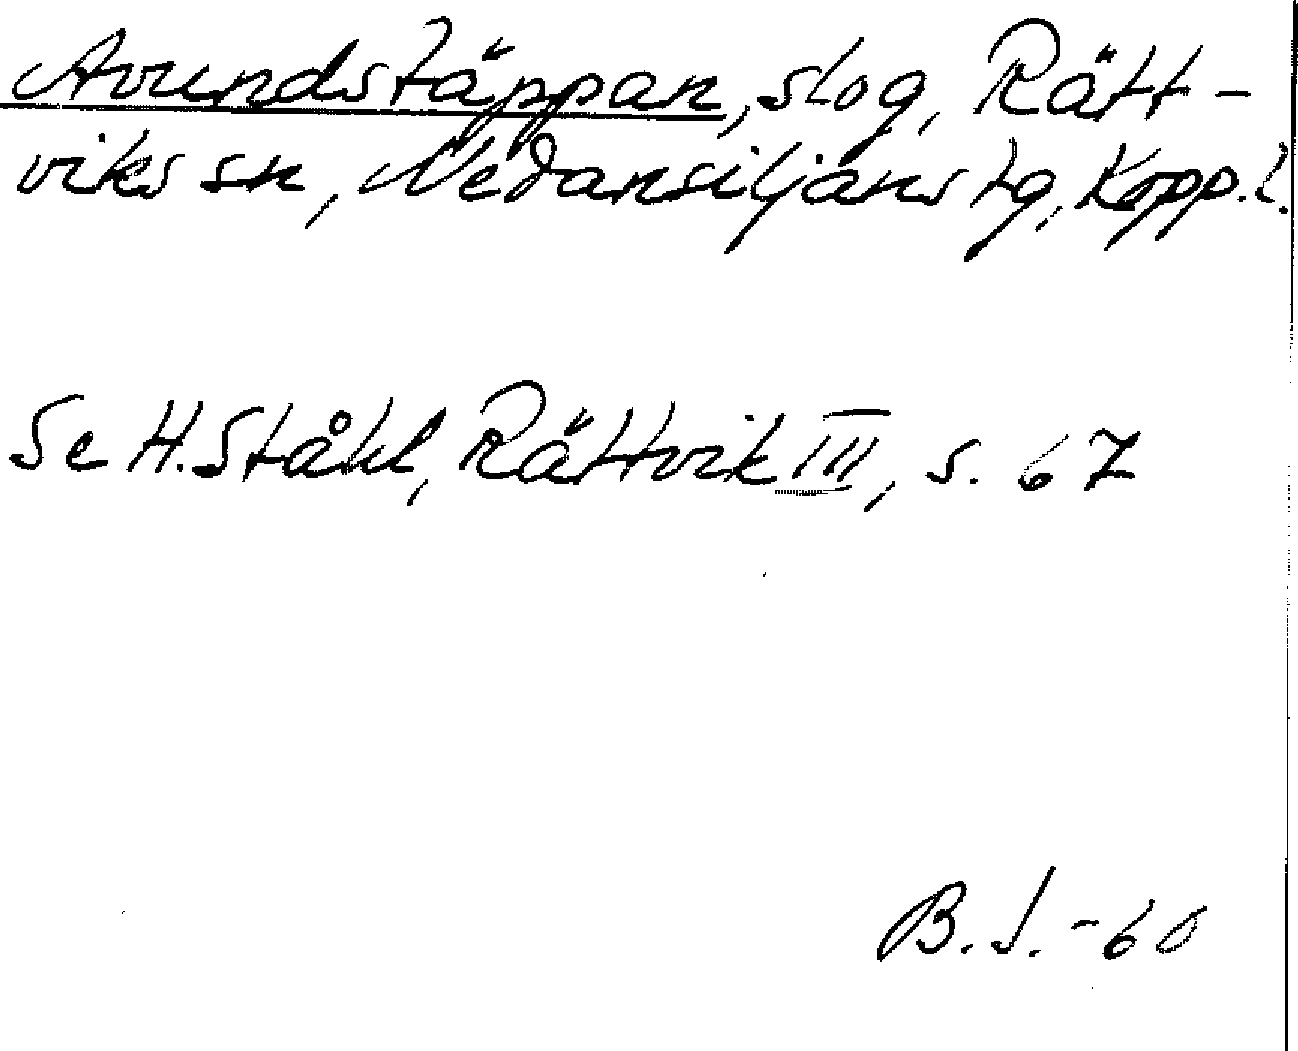 Avundstäppan, slog, Rätt-
viks sn, Nedansiljans tg, Kopp. l.
Se H. Ståhl, Rättvik III, s. 67
B. J. -60